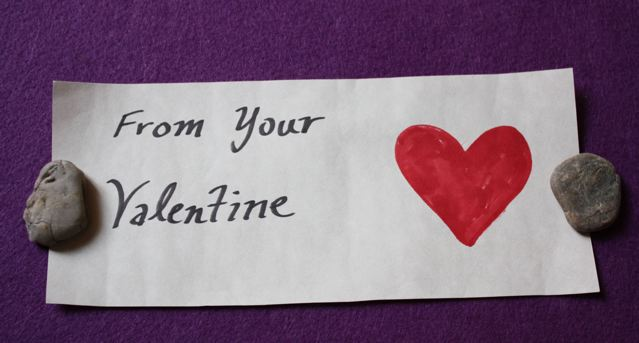 From Your
Valentine